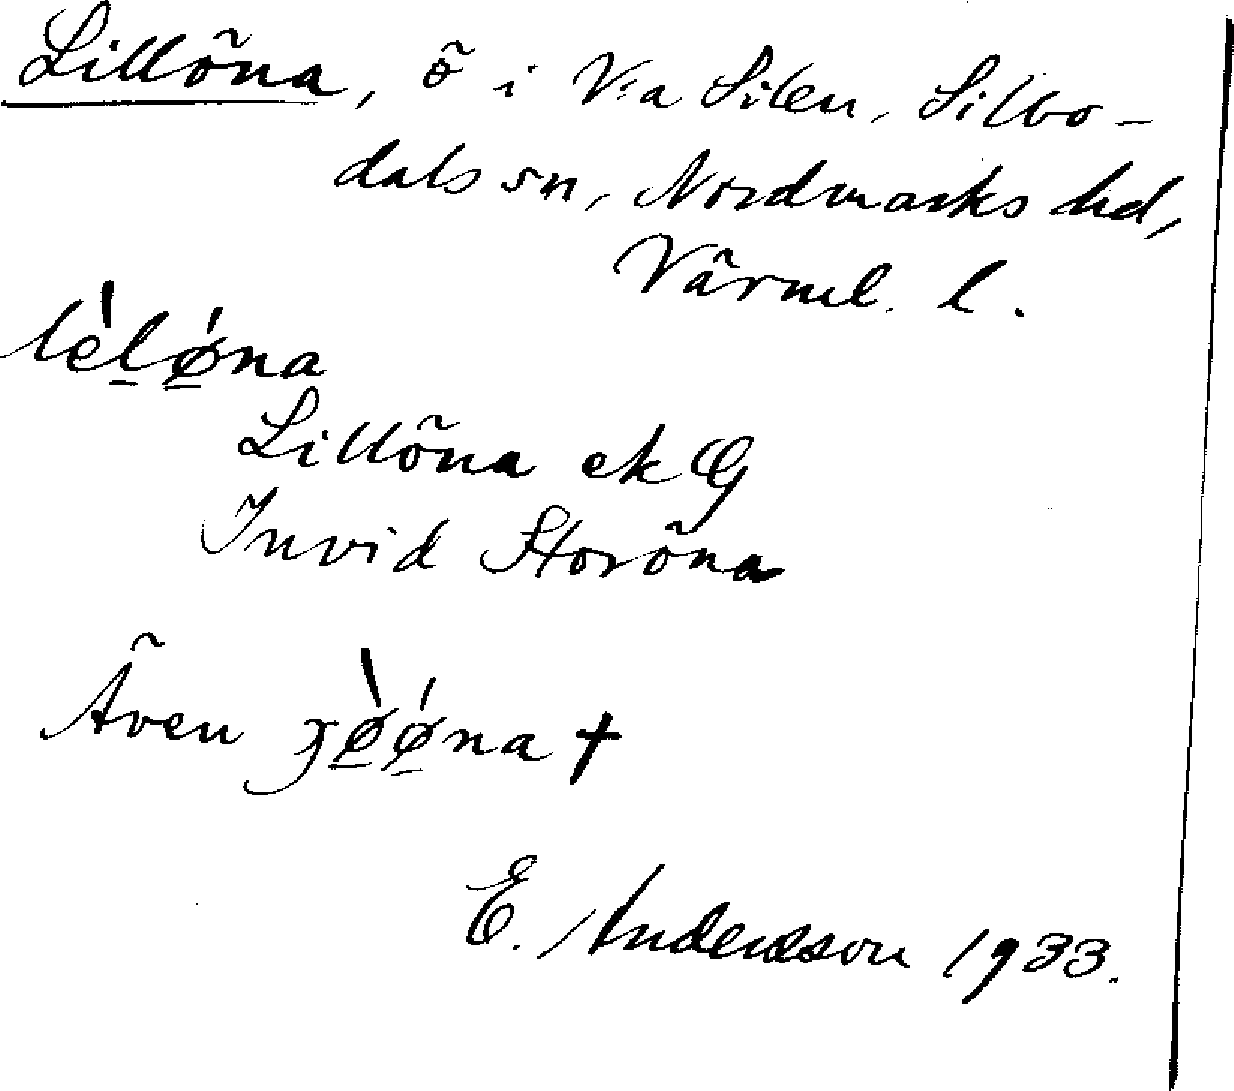 Lillöna, ö i V:a Silen, Silbo-
dals sn, Nordmarks hd,
Värml. l.
lèlǿ̲na
Lillöna ek G
Invid Storöna
Även ʒø̲̀ǿ̲na †
E. Andersson 1933.